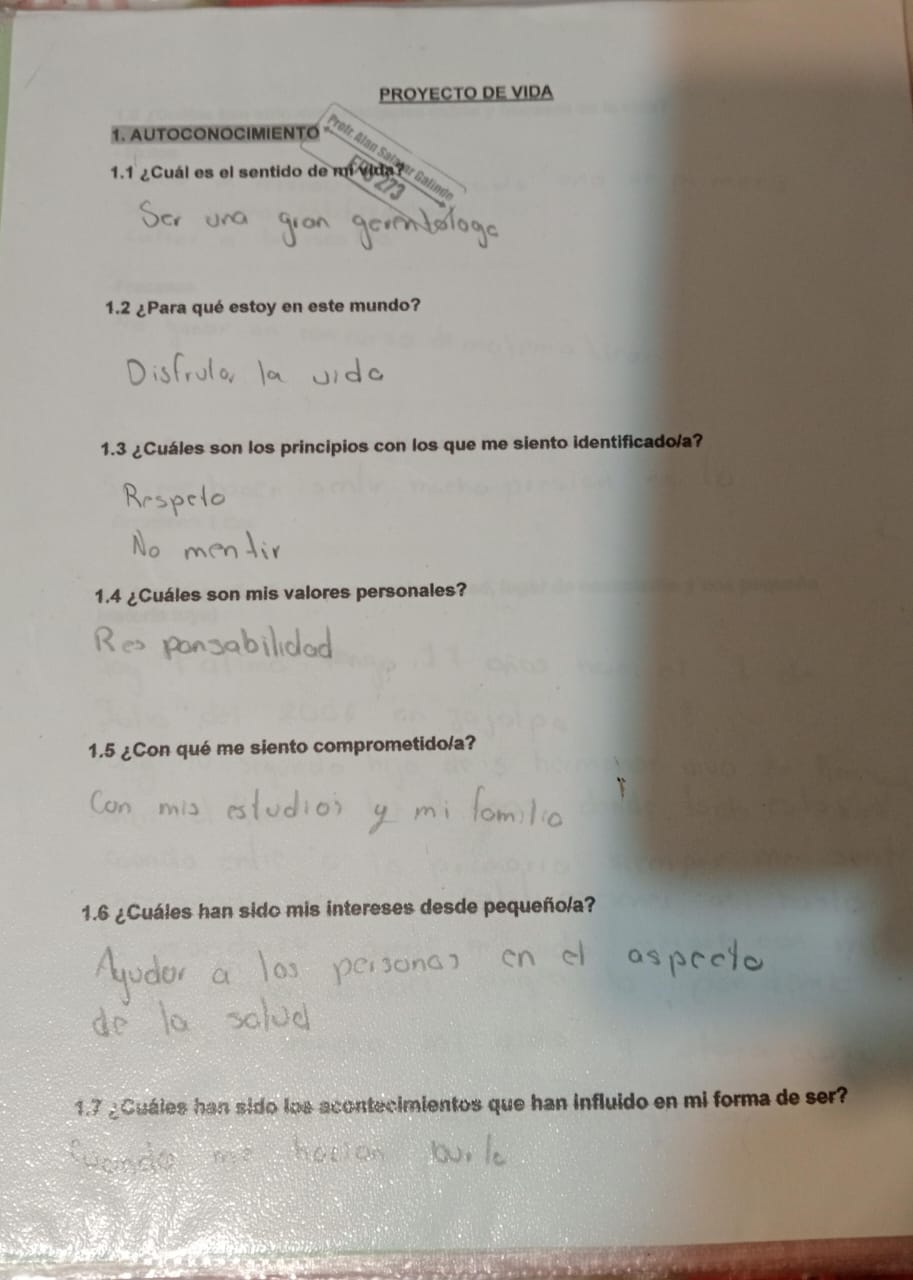 PROYECTO DE VIDA
1. AUTOCONOCIMIENTO
Profr. Alan Salazar Galindo
273
1.1 ¿Cuál es el sentido de mi vida?
Ser una gran gerentóloga
1.2 ¿Para qué estoy en este mundo?
Disfrutar la vida
1.3 ¿Cuáles son los principios con los que me siento identificado/a?
Respeto
No mentir
1.4 ¿Cuáles son mis valores personales?
Responsabilidad
1.5 ¿Con qué me siento comprometido/a?
Con mis estudios y mi familia
1.6 ¿Cuáles han sido mis intereses desde pequeño/a?
Ayudar a las personas en el aspecto
de la salud
1.7 ¿Cuáles han sido los acontecimientos que han influido en mi forma de ser?
Cuando me hacian burla